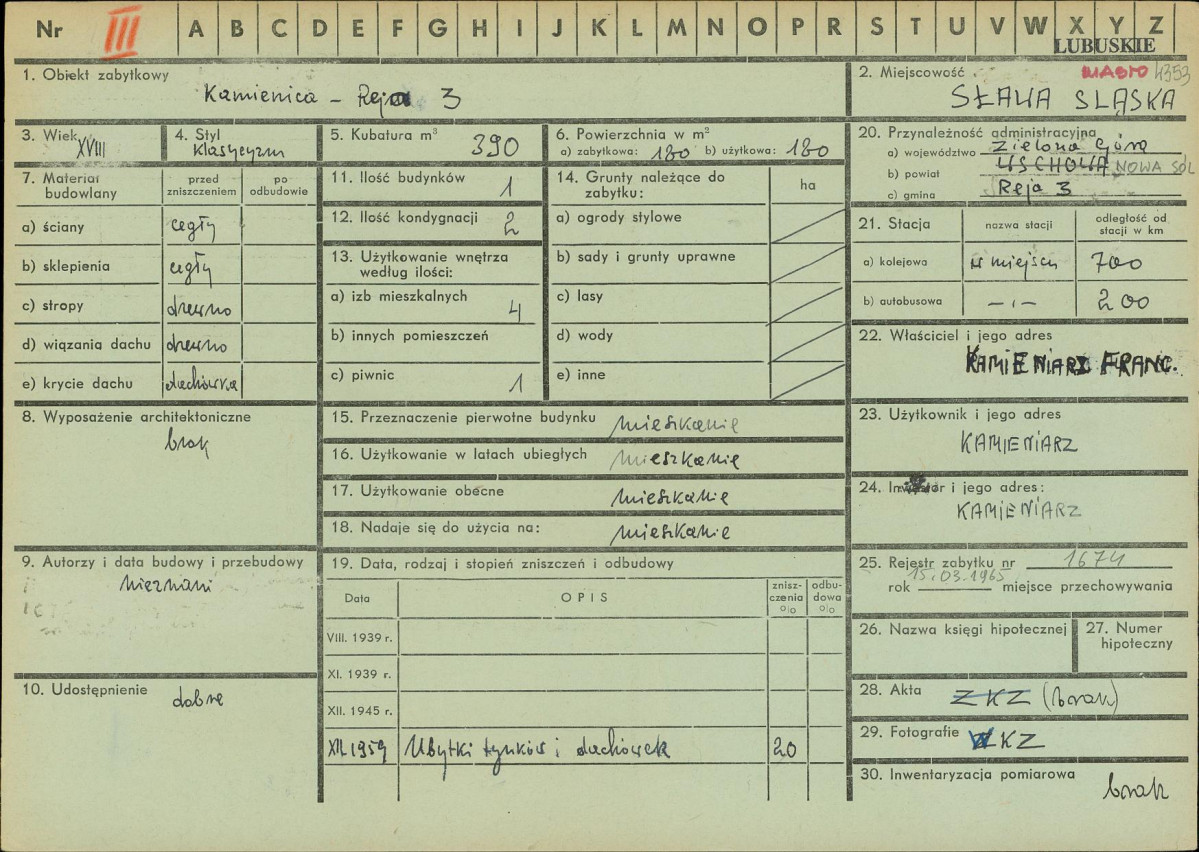 Nr III A B C D E F G H I J K L M N O P R S T U V W X Y Z
LUBUSKIE
1. Obiekt zabytkowy
Kamienica – Reja 3
2. Miejscowość MIASTO 4353
SŁAWA SLĄSKA
3. Wiek XVIII
4. Styl
klasycyzm
5. Kubatura m³ 390
6. Powierzchnia w m²
a) zabytkowa: 130 b) użytkowa: 130
20. Przynależność administracyjna
a) województwo Zielona Góra
b) powiat WSCHOWA, NOWA SÓL
c) gmina Reja 3
7. Materiał budowlany
przed zniszczeniem
po odbudowie
a) ściany cegły
b) sklepienia cegły
c) stropy drewno
d) wiązania dachu drewno
e) krycie dachu dachówka
11. Ilość budynków 1
12. Ilość kondygnacji 2
13. Użytkowanie wnętrza
według ilości:
a) izb mieszkalnych 4
b) innych pomieszczeń
c) piwnic 1
14. Grunty należące do
zabytku:
ha
a) ogrody stylowe
b) sady i grunty uprawne
c) lasy
d) wody
e) inne
21. Stacja
nazwa stacji
odległość od
stacji w km
a) kolejowa w miejscu 700
b) autobusowa –ı– 200
22. Właściciel i jego adres
KAMIENIARZ FRANC.
8. Wyposażenie architektoniczne
brak
15. Przeznaczenie pierwotne budynku mieszkanie
16. Użytkowanie w latach ubiegłych mieszkanie
17. Użytkowanie obecne mieszkanie
18. Nadaje się do użycia na: mieszkanie
23. Użytkownik i jego adres
KAMIENIARZ
24. Inwestor i jego adres:
KAMIENIARZ
9. Autorzy i data budowy i przebudowy
nieznani
19. Data, rodzaj i stopień zniszczeń i odbudowy
Data
OPIS
znisz-
czenia
%
odbu-
dowa
%
VIII. 1939 r.
XI. 1939 r.
XII. 1945 r.
XII.1959 Ubytki tynków i dachówek 20
25. Rejestr zabytku nr 1674
rok 15.03.1965 miejsce przechowywania
26. Nazwa księgi hipotecznej
27. Numer
hipoteczny
10. Udostępnienie dobre
28. Akta ZKZ (brak)
29. Fotografie WKZ
30. Inwentaryzacja pomiarowa
brak